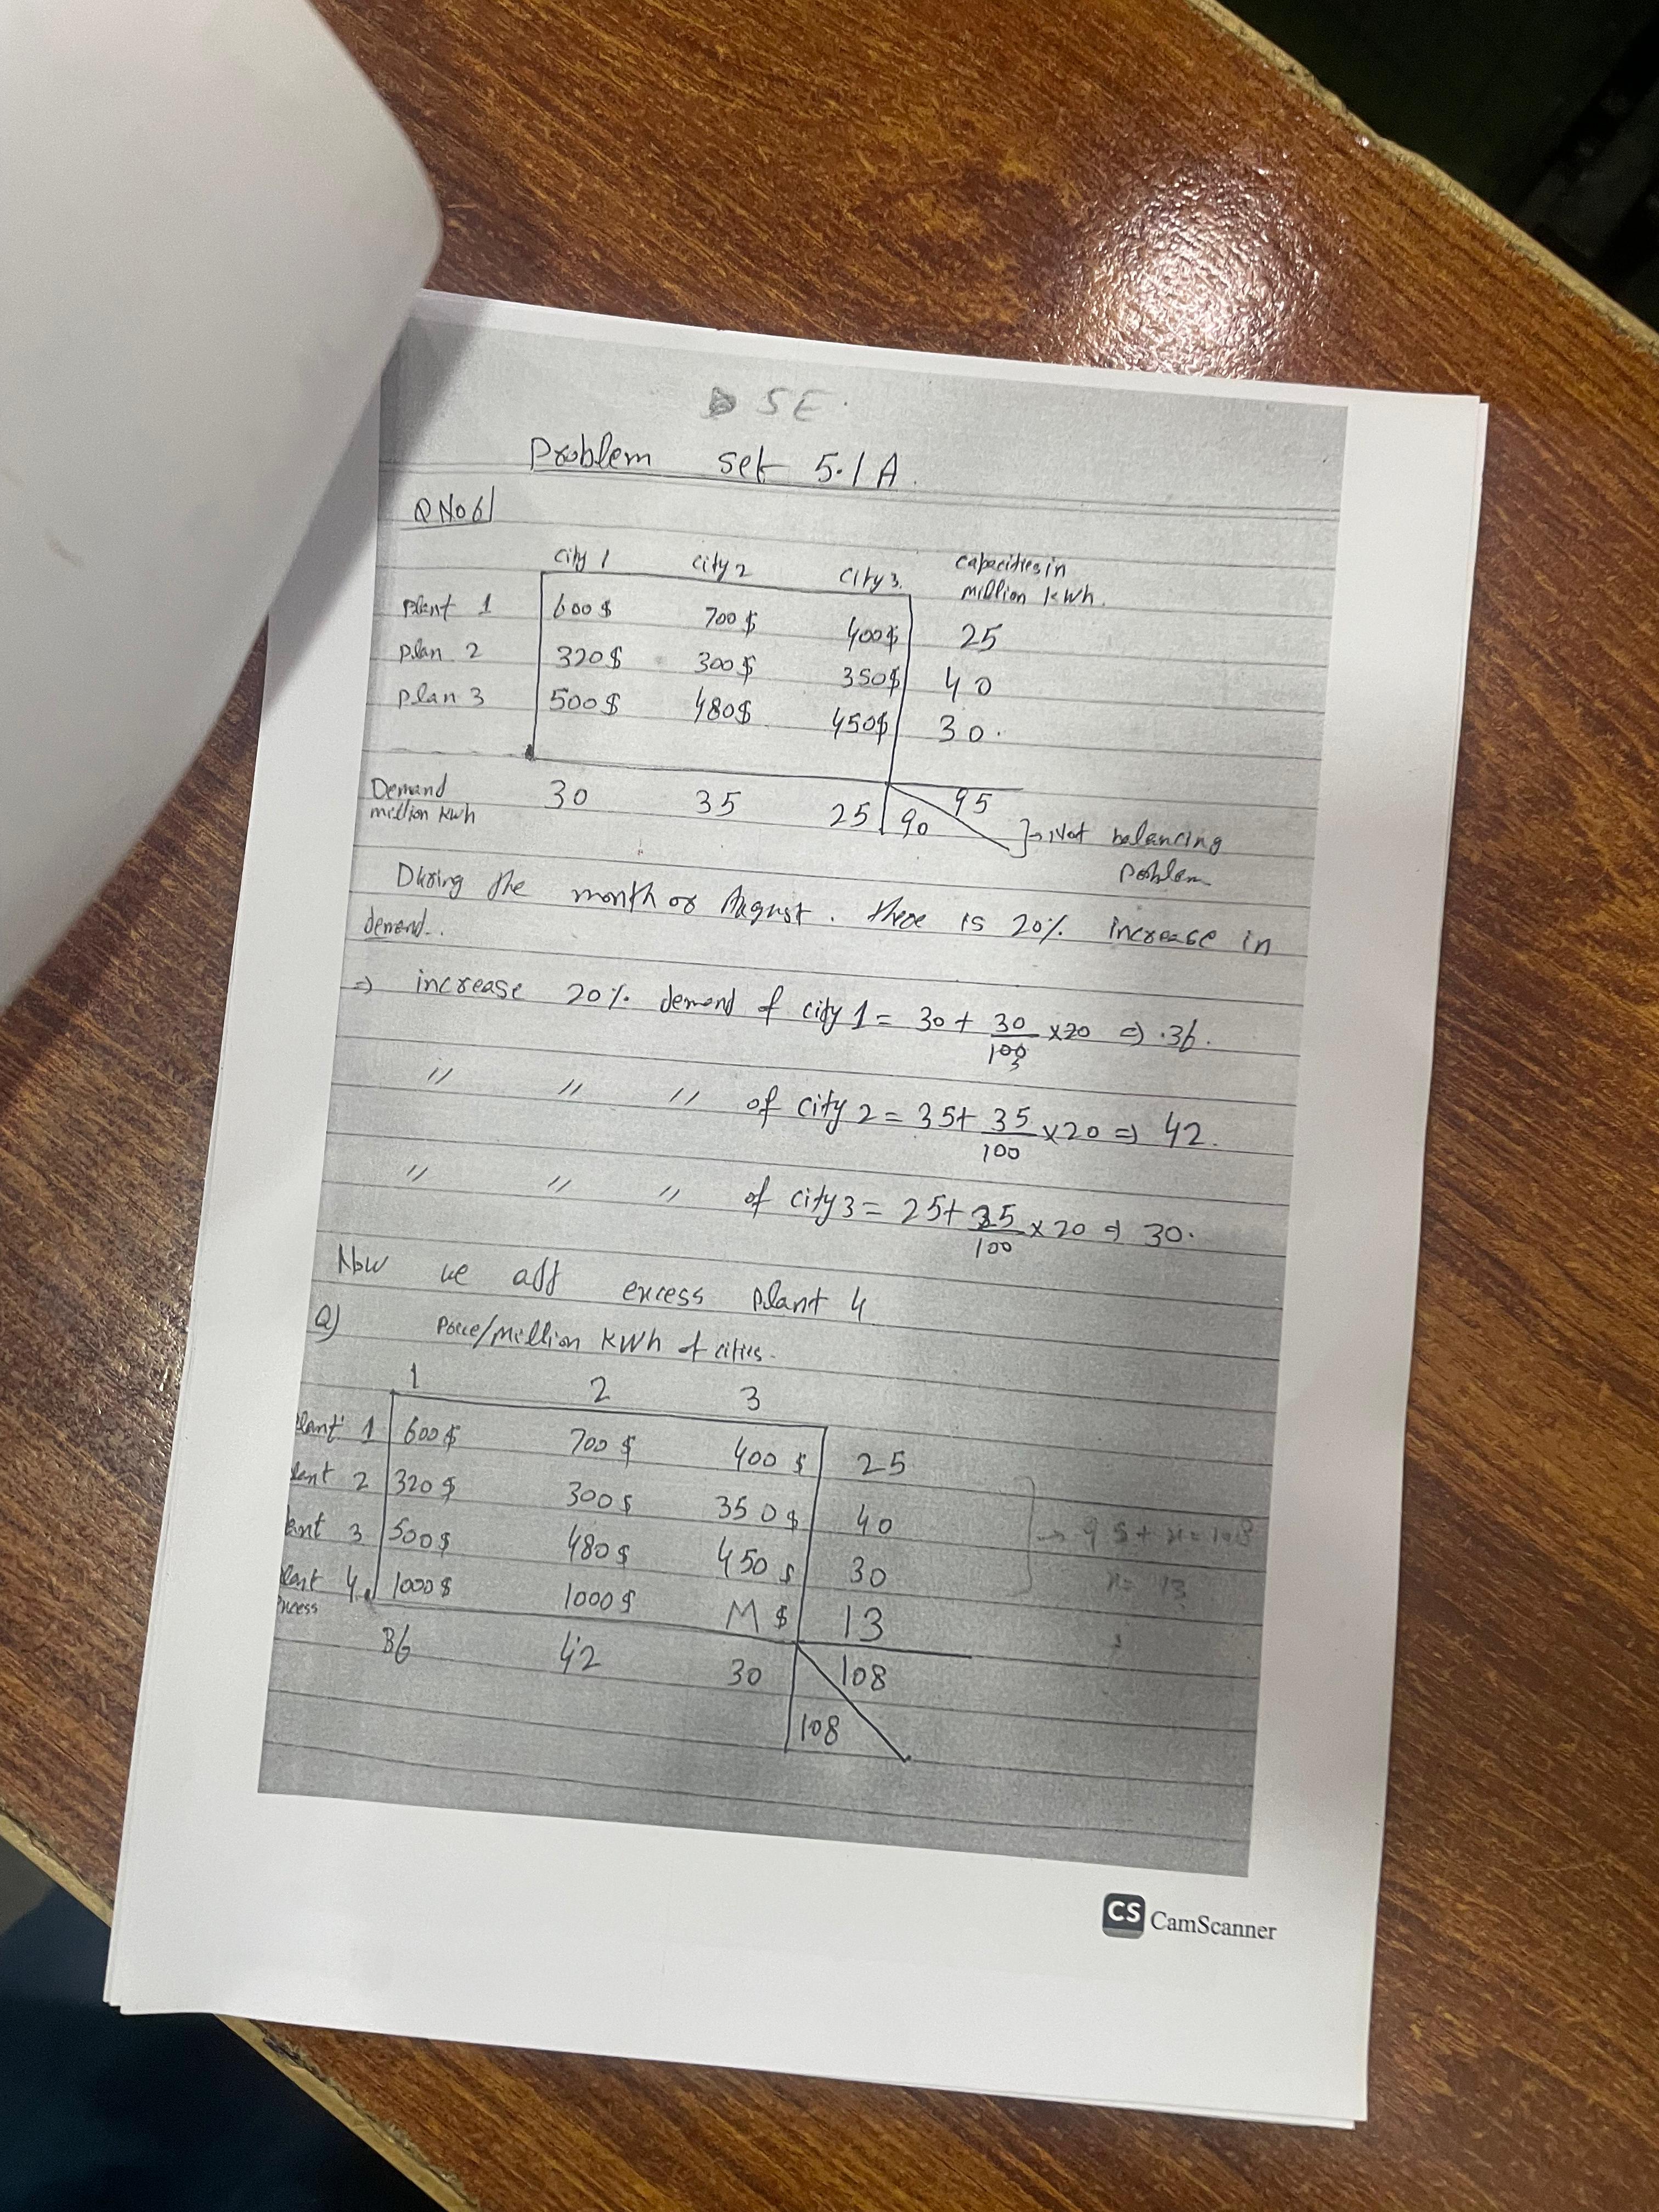 SE.
Problem set 5.1 A.
Q No 6
city 1 city 2 city 3. capacities in
million kwh.
plant 1 600 $ 700 $ 400 $ 25
plan 2 320 $ 300 $ 350 $ 40
plan 3 500 $ 480 $ 450 $ 30.
Demand
million kwh 30 35 25 90 95 Not balancing
problem
During the month of August. there is 20% increase in
demand..
⇒ increase 20% demand of city 1 = 30 + 30/100 x 20 ⇒ 36.
" " " of city 2 = 35 + 35/100 x 20 ⇒ 42.
" " " of city 3 = 25 + 25/100 x 20 ⇒ 30.
Now we add excess plant 4
Q) Price/million kWh of cities.
1 2 3
plant 1 600 $ 700 $ 400 $ 25
lant 2 320 $ 300 $ 350 $ 40
ant 3 500 $ 480 $ 450 $ 30
lant 4 1000 $ 1000 $ M $ 13
xcess
→ 95 + x = 108
x = 13
36 42 30 108
108
CS CamScanner